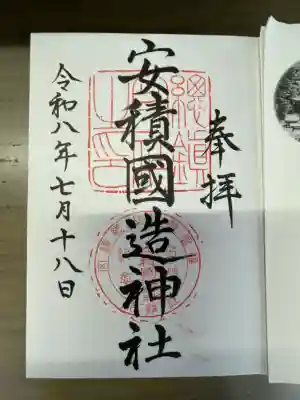 奉拝
安積國造神社
令和八年七月十八日